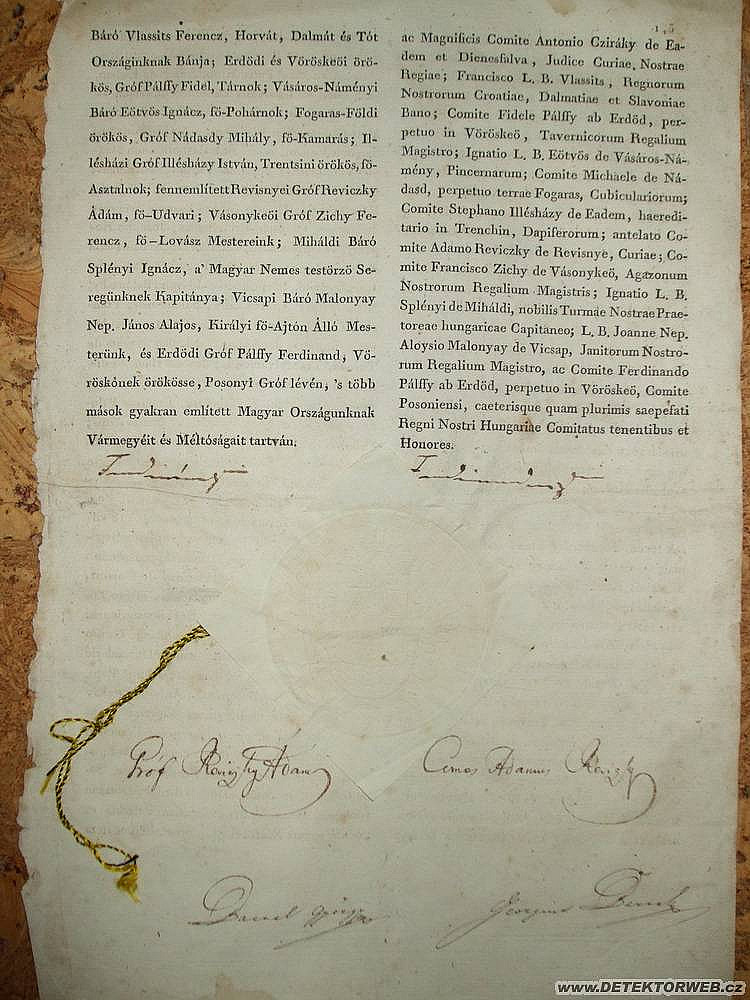 Báró Vlassits Ferencz, Horvát, Dalmát és Tót
Országinknak Bánja; Erdödi és Vöröskeöi örö-
kös, Gróf Pálffy Fidel, Tárnok; Vásáros-Náményi
Báró Eötvös Ignácz, fö-Pohárnok; Fogaras-Földi
örökös, Gróf Nádasdy Mihály, fö-Kamarás; Il-
lésházi Gróf Illésházy István, Trentsini örökös, fö-
Asztalnok; fennemlített Revisnyei Gróf Reviczky
Ádám, fö-Udvari; Vásonykeöi Gróf Zichy Fe-
rencz, fö-Lovász Mestereink; Miháldi Báró
Splényi Ignácz, a' Magyar Nemes testörzö Se-
regünknek Kapitánya; Vicsapi Báró Malonyay
Nep. János Alajos, Királyi fö-Ajtón Álló Mes-
terünk, és Erdödi Gróf Pálffy Ferdinand, Vö-
röskönek örökösse, Posonyi Gróf lévén, 's több
mások gyakran említett Magyar Országunknak
Vármegyéit és Méltóságait tartván.
ac Magnificis Comite Antonio Cziráky de Ea-
dem et Dienesfalva, Judice Curiae, Nostrae
Regiae; Francisco L. B. Vlassits, Regnorum
Nostrorum Croatiae, Dalmatiae et Slavoniae
Bano; Comite Fidele Pálffy ab Erdöd, per-
petuo in Vöröskeö, Tavernicorum Regalium
Magistro; Ignatio L. B. Eötvös de Vásáros-Ná-
mény, Pincernarum; Comite Michaele de Ná-
dasd, perpetuo terrae Fogaras, Cubiculariorum;
Comite Stephano Illésházy de Eadem, haeredi-
tario in Trenchin, Dapiferorum; antelato Co-
mite Adamo Reviczky de Revisnye, Curiae; Co-
mite Francisco Zichy de Vásonykeö, Agazonum
Nostrorum Regalium Magistris; Ignatio L. B.
Splényi de Miháldi, nobilis Turmae Nostrae Prae-
toreae hungaricae Capitaneo; L. B. Joanne Nep.
Aloysio Malonyay de Vicsap, Janitorum Nostro-
rum Regalium Magistro, ac Comite Ferdinando
Pálffy ab Erdöd, perpetuo in Vöröskeö, Comite
Posoniensi, caeterisque quam plurimis saepefati
Regni Nostri Hungariae Comitatus tenentibus et
Honores.
Gróf Reviczky Ádám
Comes Adamus Reviczky
Georgius
www.DETEKTORWEB.cz